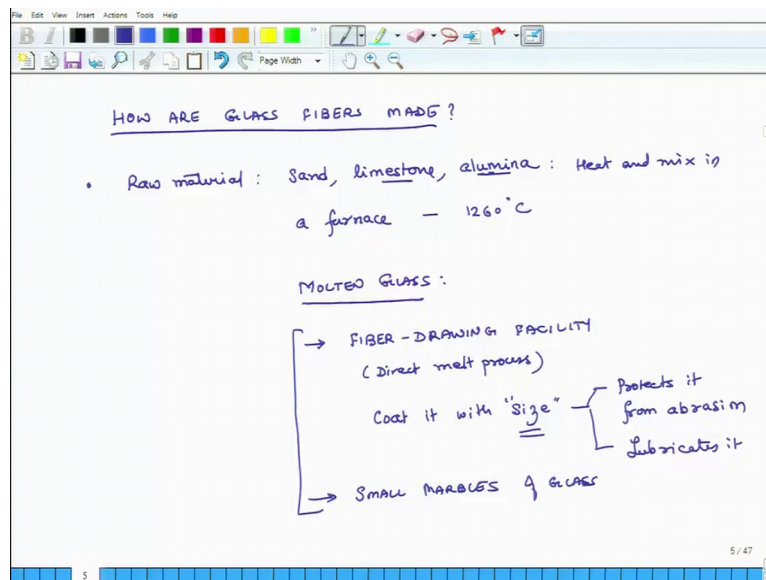 File Edit View Insert Actions Tools Help
B I
Page Width
HOW ARE GLASS FIBERS MADE?
• Raw material : Sand, limestone, alumina : Heat and mix in
a furnace – 1260°C
MOLTEN GLASS :
→ FIBER-DRAWING FACILITY
(Direct melt process)
Coat it with "Size" Protects it
from abrasion
Lubricates it
→ SMALL MARBLES of GLASS
5 / 47
5